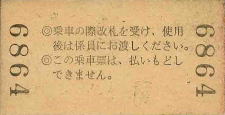 6864
◎乗車の際改札を受け、使用
後は係員にお渡しください。
◎この乗車票は、払いもどし
できません。
6864